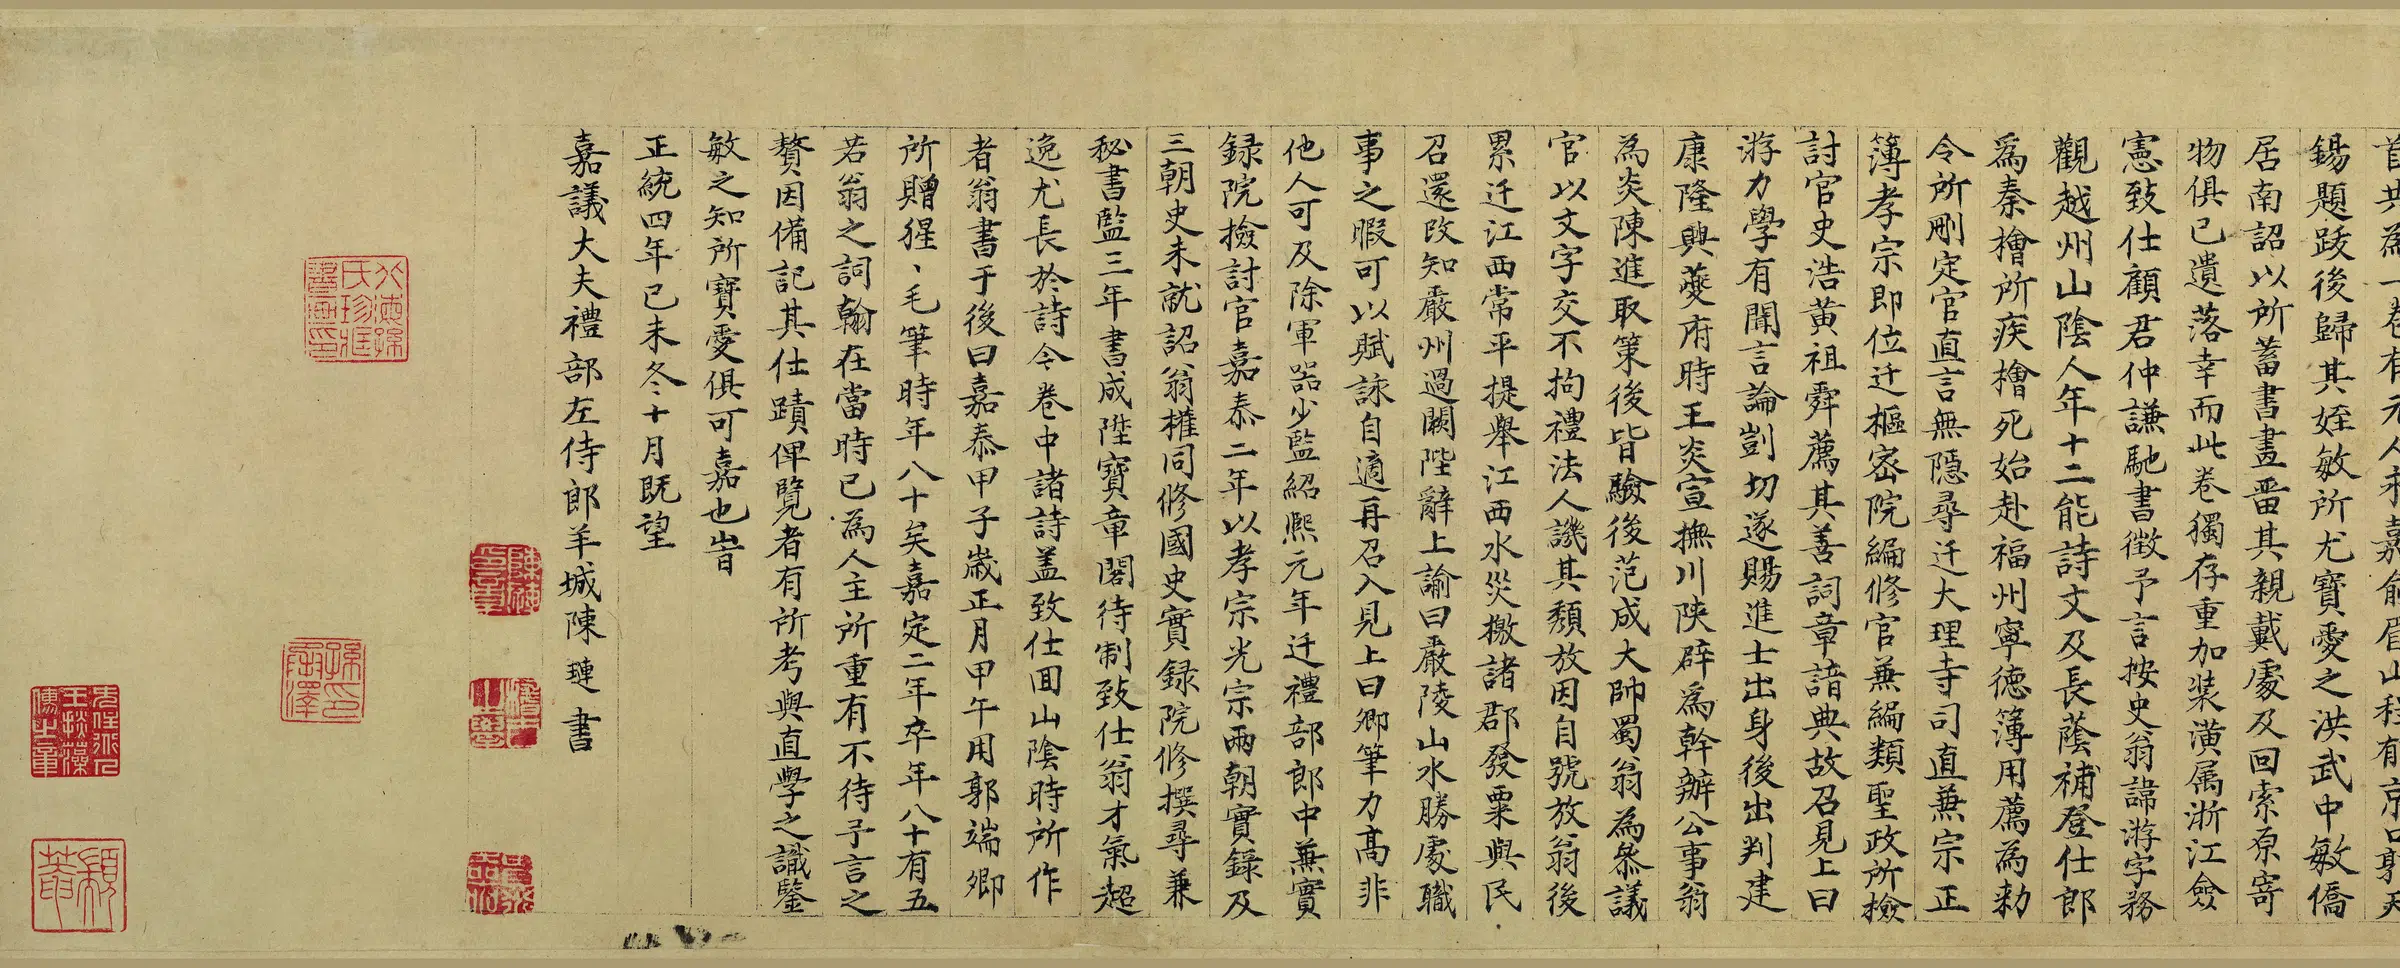 首共為一卷有元人求嘉俞眉山程有京口郭天
錫題跋後歸其姪敏所尤寶愛之洪武中敏僑
居南詔以所蓄書畫畱其親戴處及回索原寄
物俱已遺落幸而此卷獨存重加装潢属浙江僉
憲致仕顧君仲謙馳書徵予言按史翁諱游字務
觀越州山陰人年十二能詩文及長蔭補登仕郎
為秦檜所疾檜死始赴福州寧徳簿用薦為勅
令所刪定官直言無隠尋迁大理寺司直兼宗正
簿孝宗即位迁樞密院編修官兼編類聖政所檢
討官史浩黄祖舜薦其善詞章諳典故召見上曰
游力學有聞言論剴切遂賜進士出身後出判建
康隆興夔府時王炎宣撫川陝辟為幹辦公事翁
為炎陳進取策後皆驗後范成大帥蜀翁為叅議
官以文字交不拘禮法人譏其頽放因自號放翁後
累迁江西常平提舉江西水災檄諸郡發粟與民
召還改知嚴州過闕陛辭上諭曰嚴陵山水勝處職
事之暇可以賦詠自適再召入見上曰卿筆力髙非
他人可及除軍器少監紹熈元年迁禮部郎中兼實
録院撿討官嘉泰二年以孝宗光宗兩朝實録及
三朝史未就詔翁權同修國史實録院修撰尋兼
秘書監三年書成陞寶章閣待制致仕翁才氣超
逸尤長於詩今卷中諸詩盖致仕囬山陰時所作
者翁書于後曰嘉泰甲子嵗正月甲午用郭端卿
所贈猩〻毛筆時年八十矣嘉定二年卒年八十有五
若翁之詞翰在當時已為人主所重有不待予言之
贅因備記其仕蹟俾覽者有所考與直學之識鑒
敏之知所寶愛俱可嘉也旹
正統四年己未冬十月既望
嘉議大夫禮部左侍郎羊城陳璉書